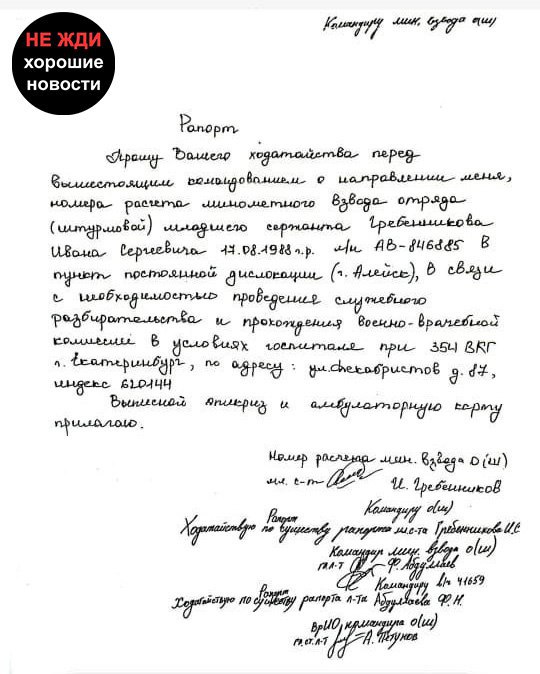 Командиру мин. взвода о(ш)
НЕ ЖДИ
хорошие
новости
Рапорт
Прошу Вашего ходатайства перед
вышестоящим командованием о направлении меня,
номера расчета минометного взвода отряда
(штурмовой) младшего сержанта Гребенникова
Ивана Сергеевича 17.08.1988 г.р. л/н АВ-846885 в
пункт постоянной дислокации (г. Алейск), в связи
с необходимостью проведения служебного
разбирательства и прохождения военно-врачебной
комиссии в условиях госпиталя при 354 ВКГ
г. Екатеринбург, по адресу: ул. Декабристов д. 87,
индекс 620144
Выписной эпикриз и амбулаторную карту
прилагаю.
Номер расчета мин. взвода о(ш)
мл. с-т И. Гребенников
Командиру о(ш)
Рапорт
Ходатайствую по существу рапорта м.с-та Гребенникова И.С
Командир мин. взвода о(ш)
гв. л-т Ф. Абдулаев
Командиру в/ч 41659
Рапорт
Ходатайствую по существу рапорта л-та Абдулаева Ф.Н.
ВрИО командира о(ш)
гв. ст. л-т А. Петунов